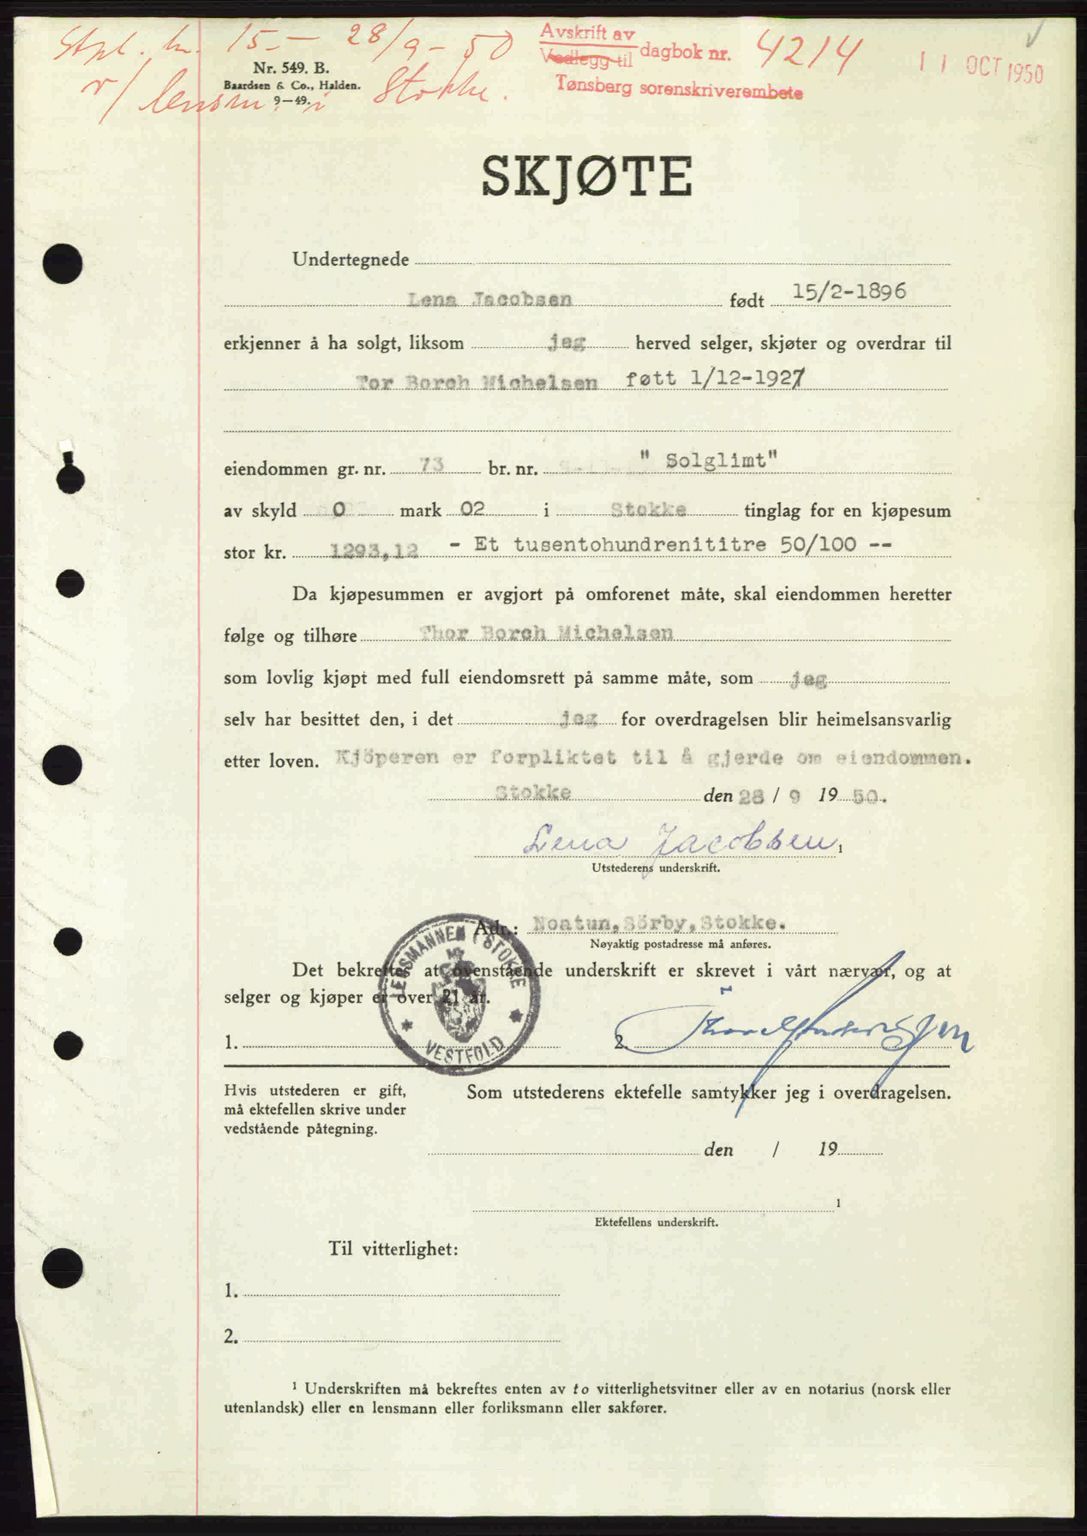 Stpl. kr. 15.- 28/9-50
v/ lensm. i Stokke.
Nr. 549. B.
Baardsen & Co., Halden.
9-49.
Avskrift av
Vedlegg til dagbok nr. 4214
Tønsberg sorenskriverembete
11 OCT 1950
SKJØTE
Undertegnede
Lena Jacobsen født 15/2-1896
erkjenner å ha solgt, liksom jeg herved selger, skjøter og overdrar til
Tor Borch Michelsen føtt 1/12-1927
eiendommen gr. nr. 73 br. nr. " Solglimt"
av skyld 0 mark 02 i Stokke tinglag for en kjøpesum
stor kr. 1293,12 - Et tusentohundrenititre 50/100 --
Da kjøpesummen er avgjort på omforenet måte, skal eiendommen heretter
følge og tilhøre Thor Borch Michelsen
som lovlig kjøpt med full eiendomsrett på samme måte, som jeg
selv har besittet den, i det jeg for overdragelsen blir heimelsansvarlig
etter loven. Kjöperen er forpliktet til å gjerde om eiendommen.
Stokke den 28 / 9 19 50.
Lena Jacobsen 1
Utstederens underskrift.
Adr.: Noatun, Sörby, Stokke.
Nøyaktig postadresse må anføres.
LENSMANNEN I STOKKE
VESTFOLD
Det bekreftes at ovenstående underskrift er skrevet i vårt nærvær, og at
selger og kjøper er over 21 år.
1. 2.
Hvis utstederen er gift,
må ektefellen skrive under
vedstående påtegning.
Som utstederens ektefelle samtykker jeg i overdragelsen.
den / 19
1
Ektefellens underskrift.
Til vitterlighet:
1.
2.
1 Underskriften må bekreftes enten av to vitterlighetsvitner eller av en notarius (norsk eller
utenlandsk) eller en lensmann eller forliksmann eller sakfører.